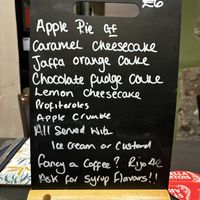 £6
Apple Pie GF
Caramel Cheesecake
Jaffa orange Cake
Chocolate fudge Cake
Lemon Cheesecake
Profiteroles
Apple Crumble
All Served With
Ice Cream or Custard
Fancy a Coffee?
Ask for Syrup Flavours!!